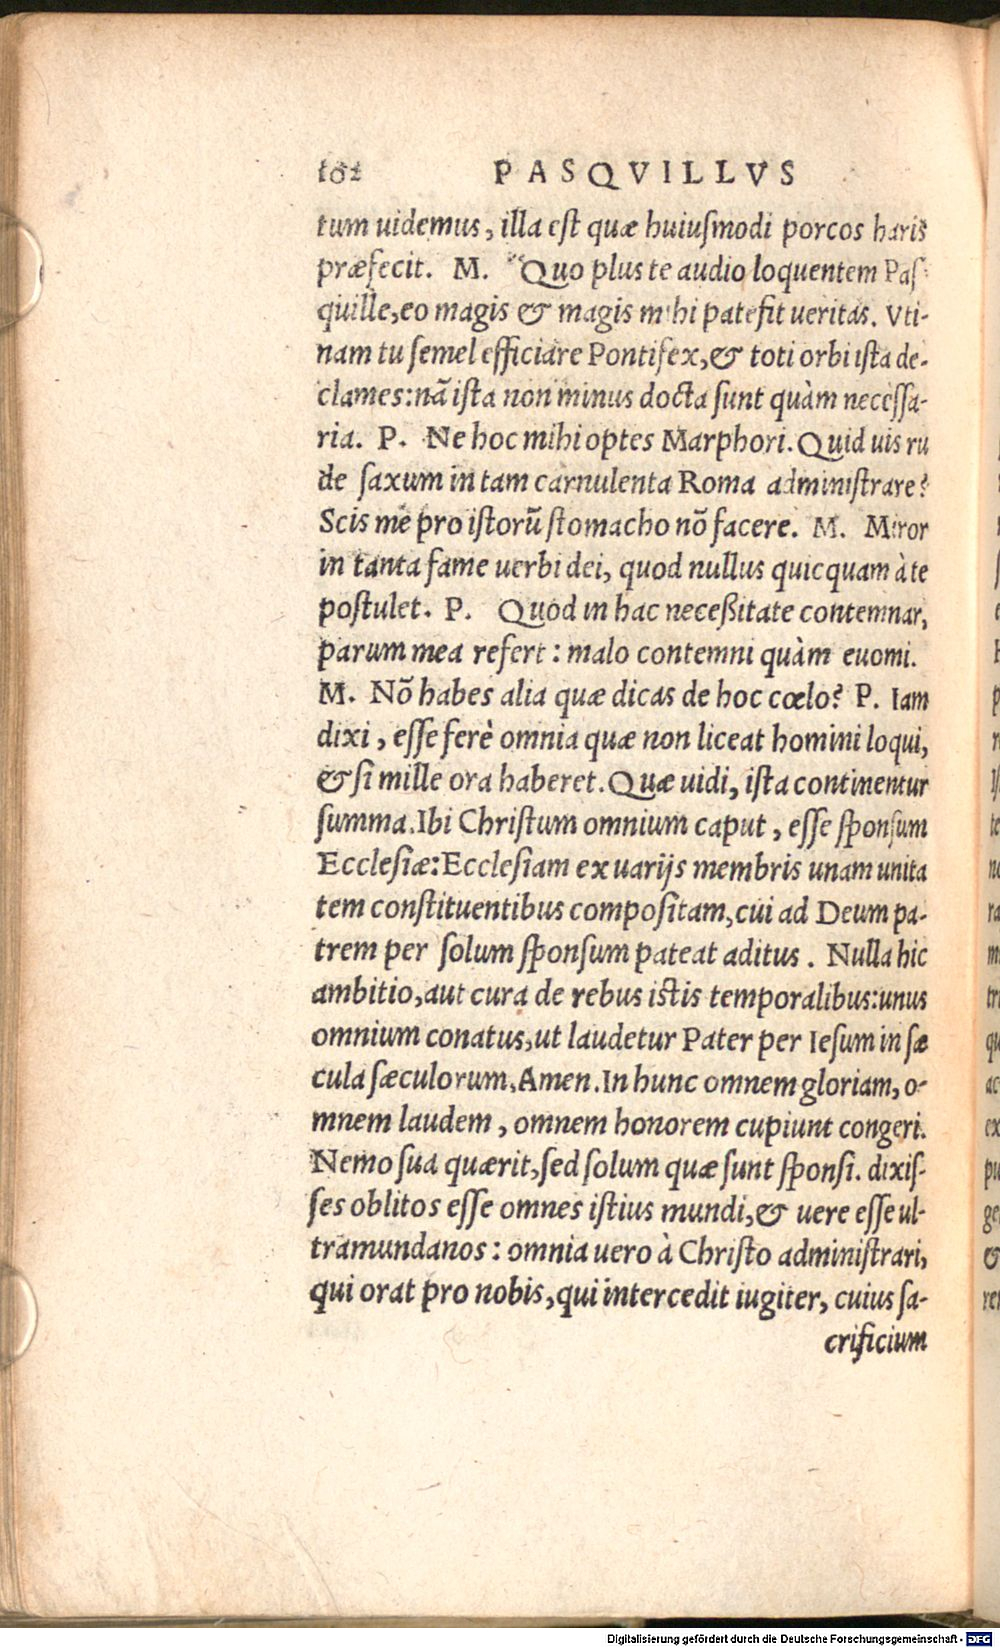 162 PASQVILLVS
tum uidemus, illa est quæ huiusmodi porcos haris
præfecit. M. Quo plus te audio loquentem Pas-
quille, eo magis & magis mihi patefit ueritas. Vti-
nam tu semel efficiare Pontifex, & toti orbi ista de-
clames: nã ista non minus docta sunt quàm necessa-
ria. P. Ne hoc mihi optes Marphori. Quid uis ru
de saxum in tam carnulenta Roma administrare?
Scis me pro istorũ stomacho nõ facere. M. Miror
in tanta fame uerbi dei, quod nullus quicquam à te
postulet. P. Quod in hac neceßitate contemnar,
parum mea refert: malo contemni quàm euomi.
M. Nõ habes alia quæ dicas de hoc cœlo? P. Iam
dixi, esse ferè omnia quæ non liceat homini loqui,
& si mille ora haberet. Quæ uidi, ista continentur
summa. Ibi Christum omnium caput, esse sponsum
Ecclesiæ: Ecclesiam ex uarijs membris unam unita
tem constituentibus compositam, cui ad Deum pa-
trem per solum sponsum pateat aditus. Nulla hic
ambitio, aut cura de rebus istis temporalibus: unus
omnium conatus, ut laudetur Pater per Iesum in sæ
cula sæculorum, Amen. In hunc omnem gloriam, o-
mnem laudem, omnem honorem cupiunt congeri.
Nemo sua quærit, sed solum quæ sunt sponsi. dixis-
ses oblitos esse omnes istius mundi, & uere esse ul-
tramundanos: omnia uero à Christo administrari,
qui orat pro nobis, qui intercedit iugiter, cuius sa-
crificium
Digitalisierung gefördert durch die Deutsche Forschungsgemeinschaft - DFG